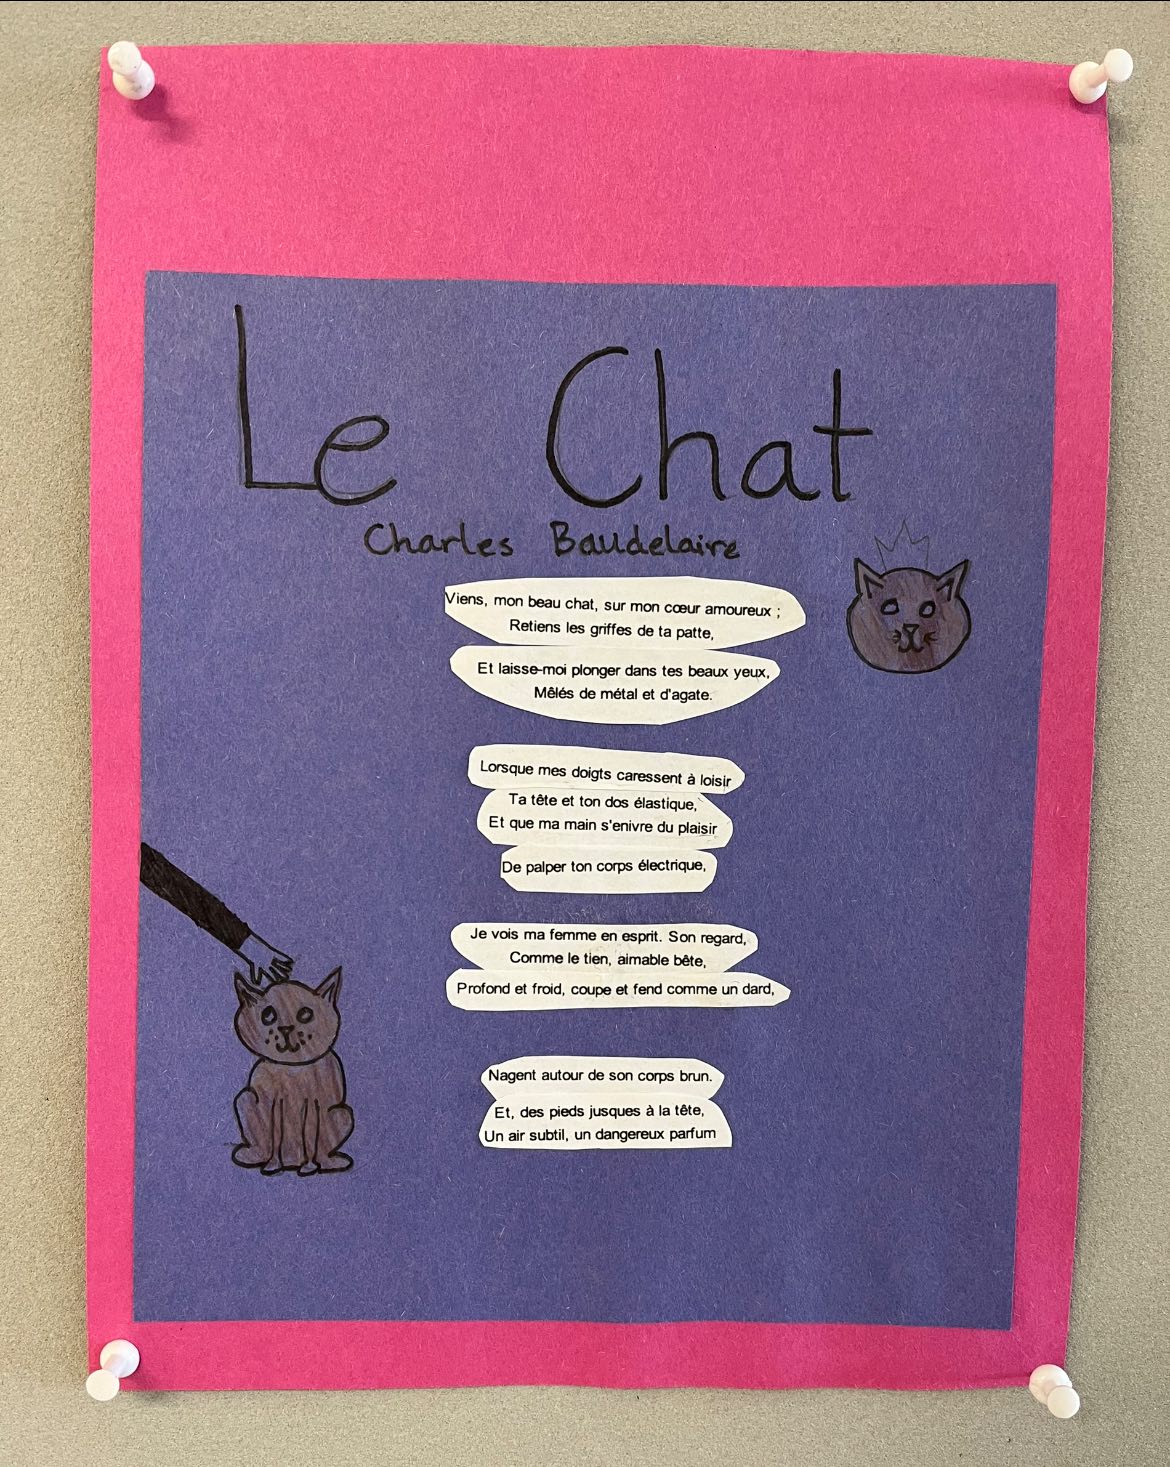 Le Chat
Charles Baudelaire
Viens, mon beau chat, sur mon cœur amoureux ;
Retiens les griffes de ta patte,
Et laisse-moi plonger dans tes beaux yeux,
Mêlés de métal et d'agate.
Lorsque mes doigts caressent à loisir
Ta tête et ton dos élastique,
Et que ma main s'enivre du plaisir
De palper ton corps électrique,
Je vois ma femme en esprit. Son regard,
Comme le tien, aimable bête,
Profond et froid, coupe et fend comme un dard,
Nagent autour de son corps brun.
Et, des pieds jusques à la tête,
Un air subtil, un dangereux parfum